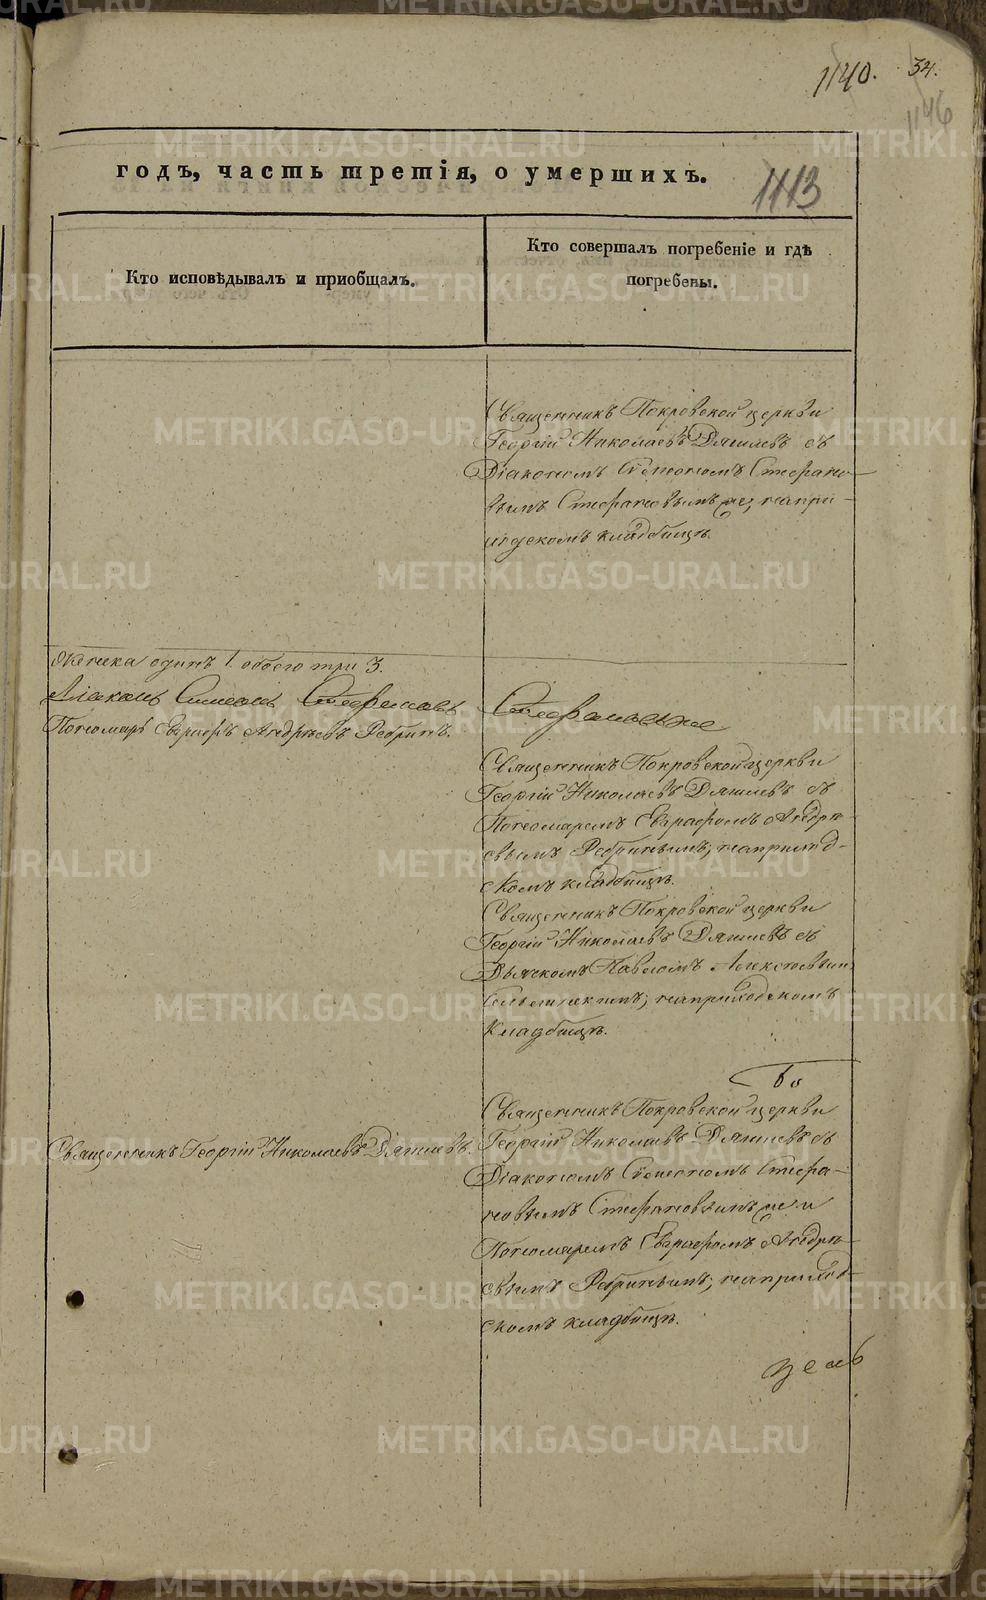 1140. 34.
1146
годъ, часть третія, о умершихъ.
1113
Кто исповѣдывалъ и приобщалъ.
Кто совершалъ погребеніе и гдѣ
погребены.
Священникъ Покровской церкви
Георгій Николаевъ съ
Діакономъ Сѵмеономъ Стефано-
вымъ Стефановымъ же, на при-
ходскомъ кладбищѣ.
одинъ 1. обоего три 3.
Діаконъ Симеонъ Стефановъ Стефановъ же
Пономарь Евграфъ Андреевъ Ребринъ.
Священникъ Покровской церкви
Георгій Николаевъ съ
Пономаремъ Евграфомъ Андре-
евымъ Ребринымъ; на приход-
скомъ кладбищѣ.
Священникъ Покровской церкви
Георгій Николаевъ съ
Дьячкомъ Павломъ Алексѣевым
на приходскомъ
кладбищѣ.
Бо
Священникъ Георгій Николаевъ
Священникъ Покровской церкви
Георгій Николаевъ съ
Діакономъ Сѵмеономъ Стефа-
новымъ Стефановымъ же и
Пономаремъ Евграфомъ Андре-
евымъ Ребринымъ; на приход-
скомъ кладбищѣ.
METRIKI.GASO-URAL.RU